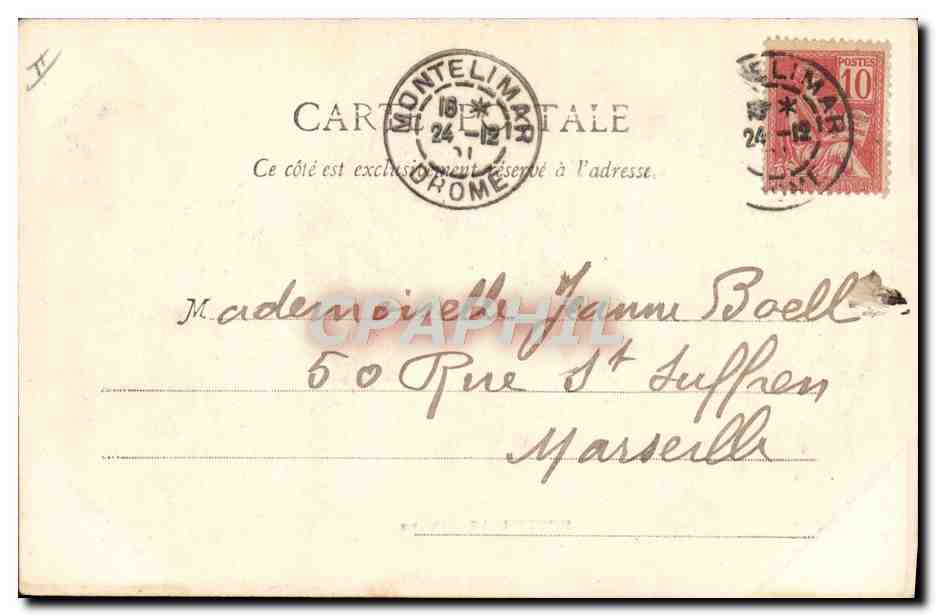 II
MONTELIMAR
18 *
24 -12
DROME
ELIMAR
*
24 -12
POSTES
10
CARTE POSTALE
Ce côté est exclusivement réservé à l'adresse.
Mademoiselle Jeanne Boell
50 Rue St Suffren
Marseille
CPAPHIL